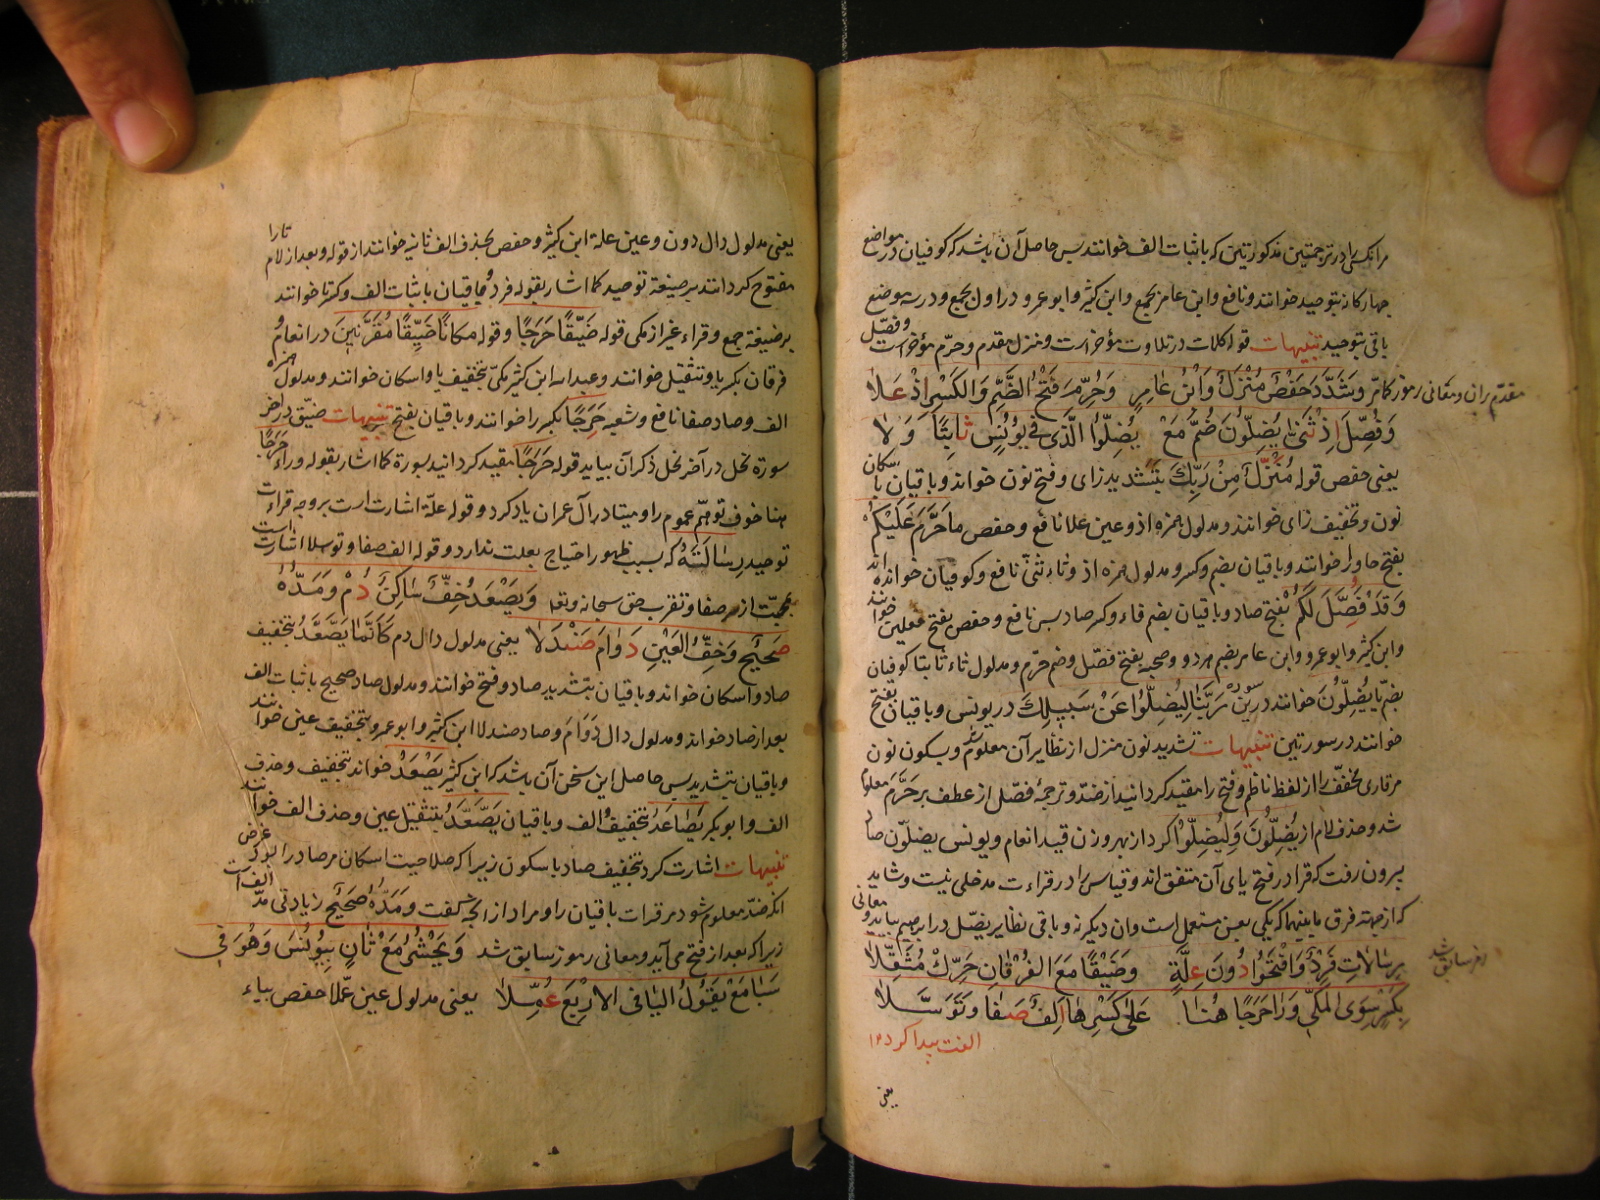 مرانکسی را در ترجمتین مذکورتین که باثبات الف خوانند پس حاصل آن باشد که کوفیان در مواضع
چهارکانه بتوحید خوانند و نافع وابن عامر بجمع وابن کثیر وابو عمرو در اول بجمع ودر سه موضع
باقی بتوحید تنبیهات قوله کلمات در تلاوت مؤخر است و منزل مقدم وحرّم مؤخر است وفصّل
مقدم بران ومعانی رموز کامر وَشَدَّدَ حَفْصٌ مُنْزَلٌ وَابْنُ عَامِرٍ وَحُرِّمَ فَتْحُ الضَّمِّ وَالْكَسْرِ إِذْ عَلَا
وَفُصِّلَ إِذْ ثَنَى يُضِلُّونَ ضُمَّ مَعْ يُضِلُّوا الَّذِي فِي يُونُسٍ ثَابِتًا وَلَا
یعنی حفص قوله مُنَزَّلٌ مِنْ رَبِّكَ بتشدید زای وفتح نون خواند وباقیان باسکان
نون وتخفیف زای خوانند ومدلول همزه اذ وعین علا نافع وحفص ما حَرَّمَ عَلَيْكُمْ
بفتح حا ورا خوانند وباقیان بضم وکسر ومدلول همزه اذ وثاء ثنی نافع وکوفیان خوانده اند
وَقَدْ فَصَّلَ لَكُمْ بفتح صاد وباقیان بضم فاء وکسر صاد پس نافع وحفص بفتح فعلین خوانند
وابن کثیر وابو عمرو وابن عامر بضم هر دو وصحبه بفتح فصّل وضم حرّم ومدلول ثاء ثابتا کوفیان
بضم یا یُضِلُّونَ خوانند درین سوره رَبَّنَا لِيُضِلُّوا عَنْ سَبِيلِكَ در یونس وباقیان بفتح
خوانند در سورتین تنبیهات تشدید نون منزل از نظایر آن معلوم شد وسکون نون
مر قاری مخفف را از لفظ ناظم وفتح را مقید کردانید از ضد وترجمهٔ فصّل از عطف بر حَرَّمَ معلوم
شد وحذف لام از یُضِلُّونَ وَلِيُضِلُّوا کرد از بهر وزن قید انعام ویونس یضلّون صا
بیرون رفت که قرا در فتح یای آن متفق اند وقیاس را در قراءت مدخلی نیست وشاید
که از جهته فرق مابینهما که یکی بعین مستعمل است وان دیگر نه وباقی نظایر یضل در ابراهیم بیاید ومعانی
رمز سابق شد
رِسَالَاتِ فَرْدٌ وَافْتَحُوا دُونَ عِلَّةٍ وَضَيْقًا مَعَ الْفُرْقَانِ حَرِّكْ مُثَقِّلَا
بِكَسْرٍ سِوَى الْمَكِّي وَرَا حَرَجًا هُنَا عَلَى كَسْرِهَا إِلْفٌ صَفَا وَتَوَسَّلَا
الفت پیدا کرد ۱۲
یعنی
یعنی مدلول دال دون وعین علة ابن کثیر وحفص بحذف الف ثانیه خوانند از قوله وبعد از لام تا را
مفتوح کردانند بر صیغهٔ توحید کما اشار بقوله فرد وباقیان باثبات الف وکسر تا خوانند
بر صیغهٔ جمع وقراء غیر از مکی قوله ضَيِّقًا حَرَجًا وقوله مَكَانًا ضَيِّقًا مُقَرَّنِينَ در انعام و
فرقان بکسر یا وتثقیل خوانند وعبد الله ابن کثیر مکی بتخفیف یا واسکان خوانند ومدلول همزه
الف وصاد صفا نافع وشعبه حَرِجًا بکسر را خوانند وباقیان بفتح تنبیهات ضیق در آخر
سورة نحل در آخر نحل ذکر آن بیاید قوله حَرَجًا مقید کردانید سورة کما اشار بقوله وراء حَرَجًا
هنا خوف توهم عموم را ومیتا در آل عمران یاد کرد وقوله علّة اشارت است بر وجه قراءت
توحید رِسَالَتَهُ که بسبب ظهور احتیاج بعلت ندارد وقوله الف صفا وتوسلا اشارت است
بمحبت از سر صفا وتقرب حق سبحانه وتعا وَيَصْعَدُ خِفٌّ سَاكِنٌ دُمْ وَمَدُّهُ
صَحِيحٌ وَخِفُّ الْعَيْنِ دَاوَمَ صَنْدَلَا یعنی مدلول دال دم كَأَنَّمَا يَصَّعَّدُ بتخفیف
صاد واسکان خواند وباقیان بتشدید صاد وفتح خوانند ومدلول صاد صحیح باثبات الف
بعد از صاد خواند ومدلول دال دَاوَمَ وصاد صندلا ابن کثیر وابو عمرو بتخفیف عین خوانند
وباقیان بتشدید پس حاصل این سخن آن باشد که ابن کثیر یَصْعَدُ خواند بتخفیف وحذف
الف وابو بکر یَصَّاعَدُ بتخفیف والف وباقیان یَصَّعَّدُ بتثقیل عین وحذف الف خوانند
تنبیهات اشارت کرد بتخفیف صاد با سکون زیرا که صلاحیت اسکان مر صاد را بود که غرض
انکه ضد معلوم شود مر قرات باقیان را ومراد از انچه گفت وَمَدُّهُ صَحِيحٌ زیادتی مدّ الف است
زیرا که بعد از فتح می آید ومعانی رموز سابق شد وَيَحْشُرُ مَعْ ثَانٍ بِيُونُسَ وَهُوَ فِي
سَبَا مَعْ يَقُولُ الْيَا فِي الْأَرْبَعِ عُمِّلَا یعنی مدلول عین عملا حفص بیاء